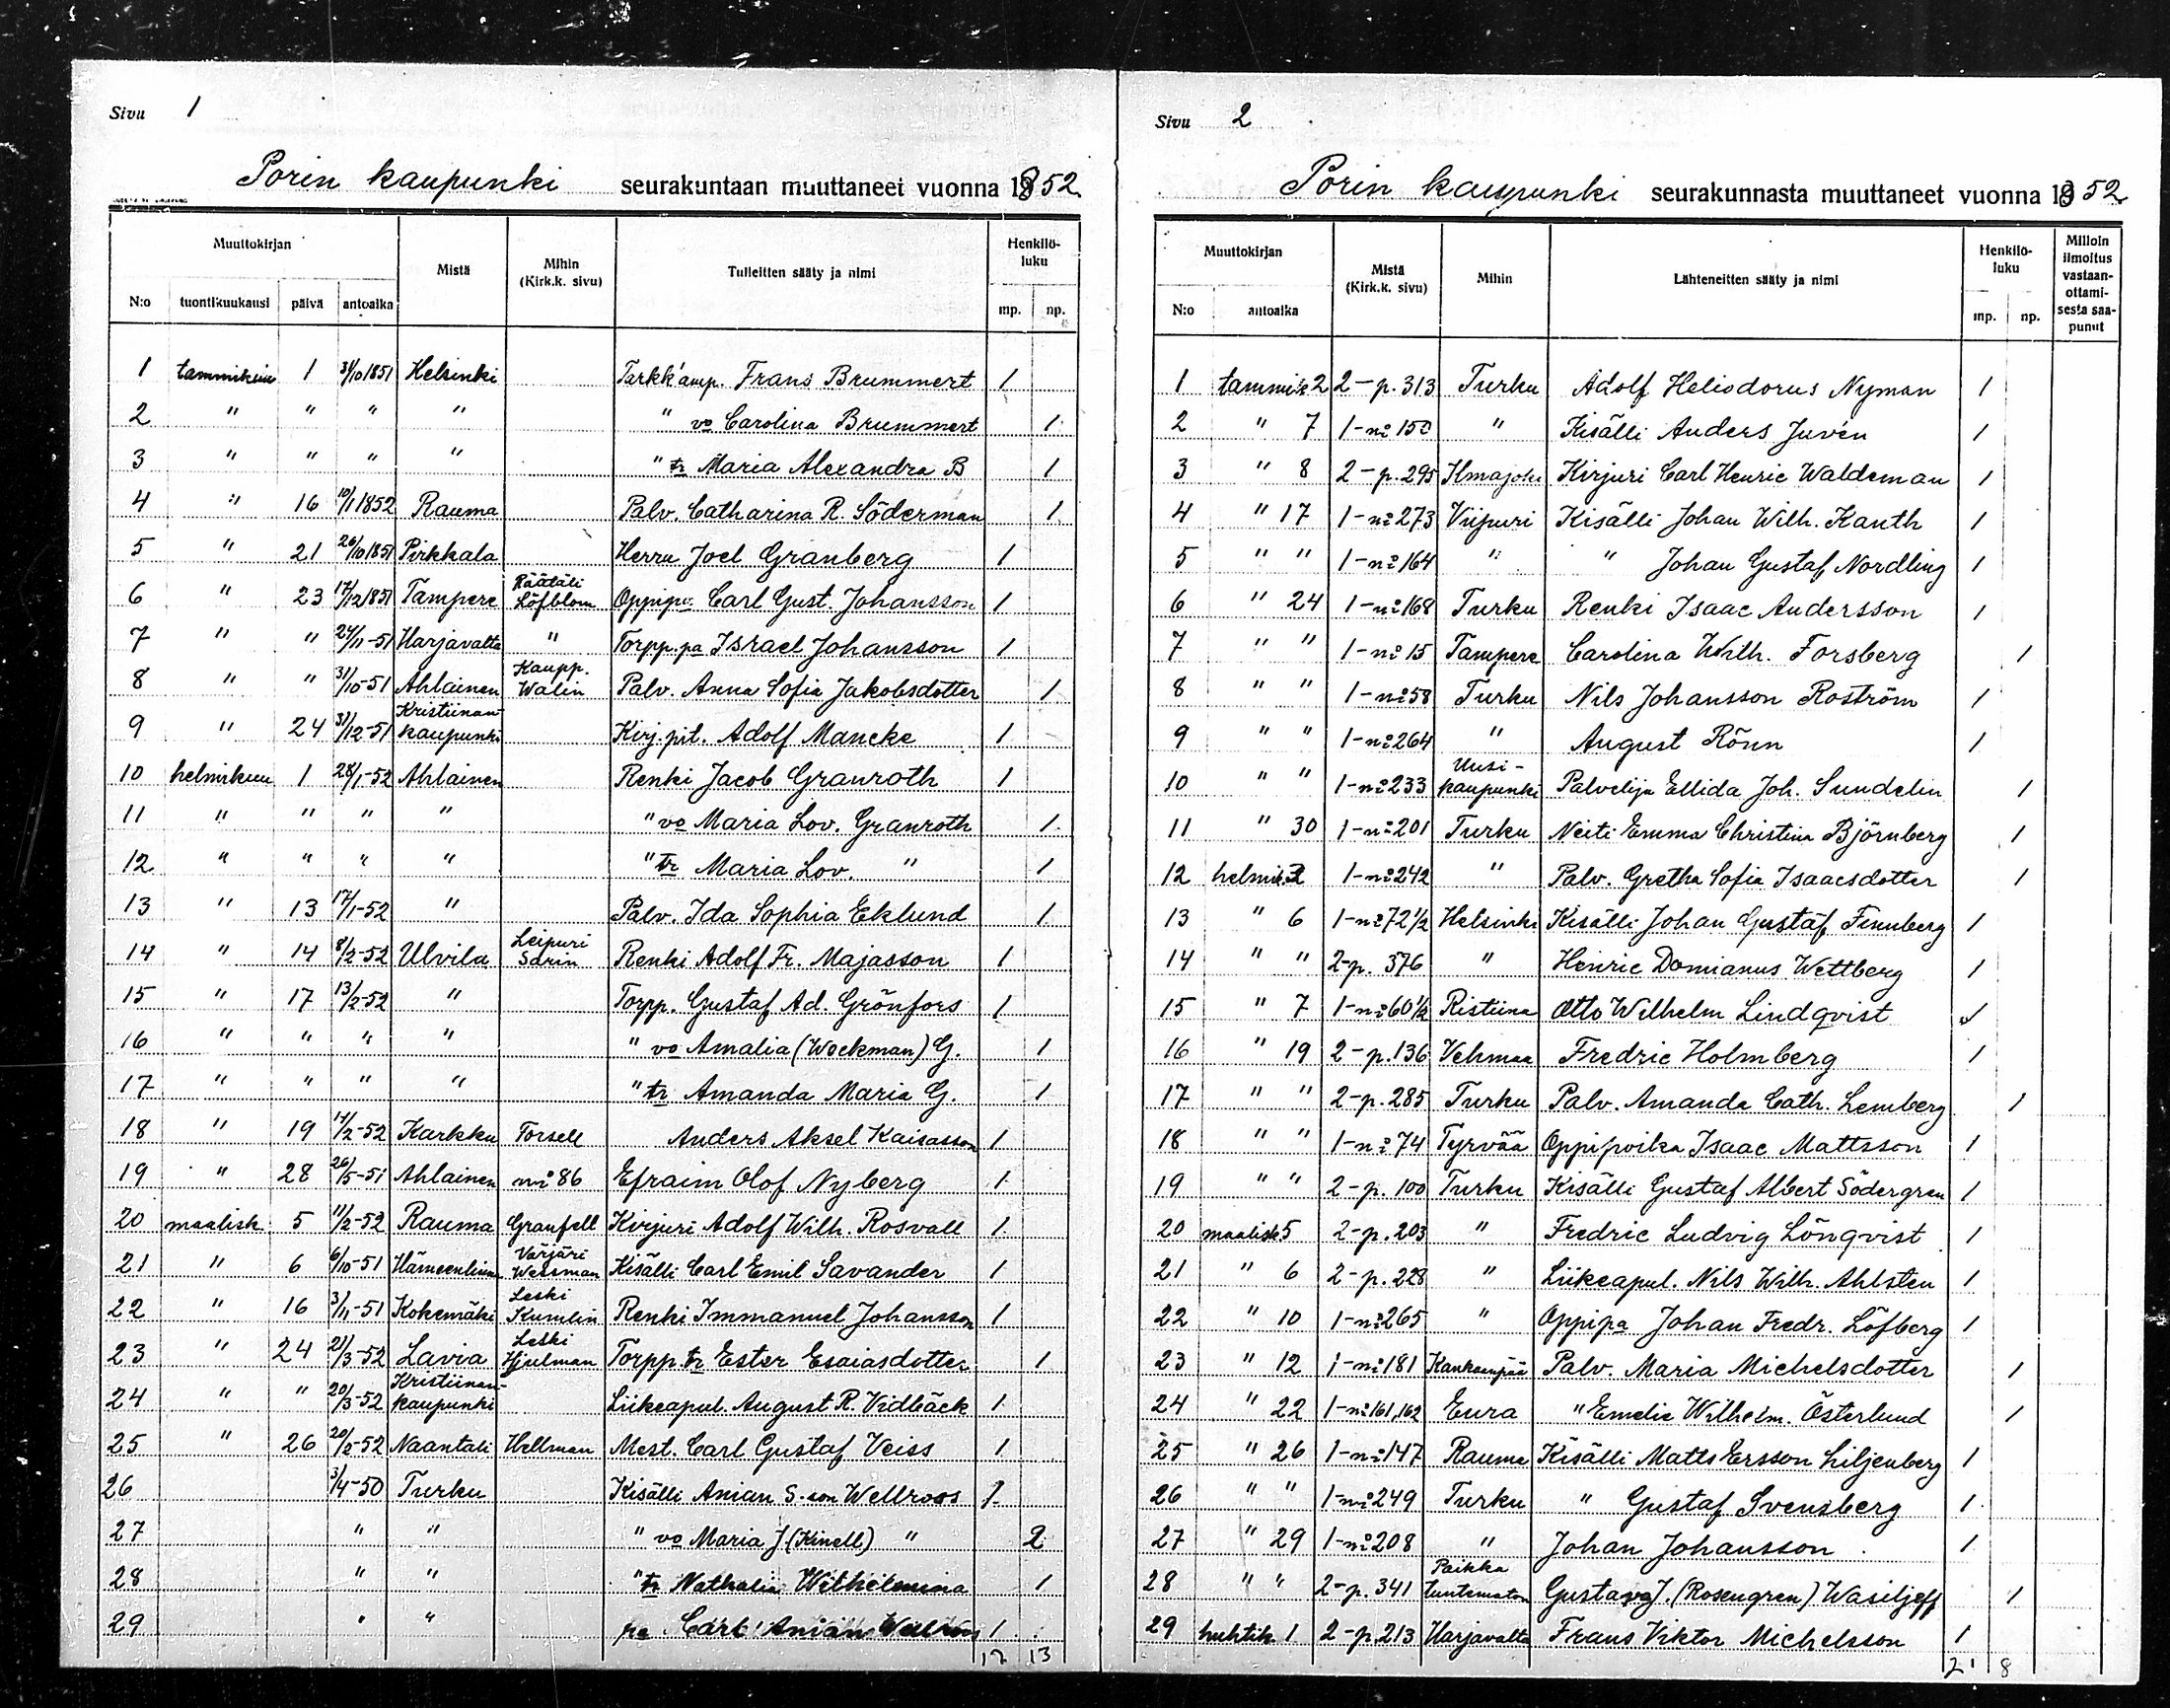 Sivu 1
Porin kaupunki seurakuntaan muuttaneet vuonna 1852
Muuttokirjan Mistä Mihin (Kirk.k. sivu) Tulleitten sääty ja nimi Henkilö-luku
N:o tuontikuukausi päivä antoaika mp. np.
1 tammikuu 1 31/10 1851 Helsinki Tarkk'amp. Frans Brummert 1
2 " " " " " vo Carolina Brummert 1
3 " " " " " tr Maria Alexandra B 1
4 " 16 10/1 1852 Rauma Palv. Catharina R. Söderman 1
5 " 21 26/10 1851 Pirkkala Herra Joel Granberg 1
6 " 23 17/12 1851 Tampere Räätäli Löfblom Oppipo. Carl Gust. Johansson 1
7 " " 24/11-51 Harjavalta " Torpp. pa Israel Johansson 1
8 " " 31/10-51 Ahlainen Kaupp. Walin Palv. Anna Sofia Jakobsdotter 1
9 " 24 31/12-51 Kristiinankaupunki Kirj. pit. Adolf Mancke 1
10 helmikuu 1 28/1-52 Ahlainen Renki Jacob Granroth 1
11 " " " " " vo Maria Lov. Granroth 1
12 " " " " " tr Maria Lov. " 1
13 " 13 17/1-52 " Palv. Ida Sophia Eklund 1
14 " 14 8/2-52 Ulvila Leipuri Sarin Renki Adolf Fr. Majasson 1
15 " 17 13/2-52 " Torpp. Gustaf Ad. Grönfors 1
16 " " " " " vo Amalia (Weckman) G. 1
17 " " " " " tr Amanda Maria G. 1
18 " 19 17/2-52 Karkku Torsell Anders Aksel Kaisasson 1
19 " 28 26/5-51 Ahlainen no: 86 Efraim Olof Nyberg 1
20 maalisk. 5 11/2-52 Rauma Granfell Kirjuri Adolf Wilh. Rosvall 1
21 " 6 6/10-51 Hämeenlinna Värjäri Wessman Kisälli Carl Emil Savander 1
22 " 16 3/11-51 Kokemäki Leski Kumlin Renki Immanuel Johansson 1
23 " 24 21/3-52 Lavia Leski Hjulman Torpp. tr Ester Esaiasdotter 1
24 " " 20/3-52 Kristiinankaupunki Liikeapul. August R. Vidbäck 1
25 " 26 20/2-52 Naantali Hellman Mest. Carl Gustaf Veiss 1
26 3/4-50 Turku Kisälli Anian S-son Wellroos 1
27 " " " vo Maria J. (Kinell) " 2
28 " " " tr Nathalia Wilhelmina 1
29 " " pa Carl Anian 1
12 13
Sivu 2
Porin kaupunki seurakunnasta muuttaneet vuonna 1852
Muuttokirjan Mistä (Kirk.k. sivu) Mihin Lähteneitten sääty ja nimi Henkilö-luku Milloin ilmoitus vastaan-ottami-sesta saa-punut
N:o antoaika mp. np.
1 tammik 2 2-p. 313 Turku Adolf Heliodorus Nyman 1
2 " 7 1-no: 150 " Kisälli Anders Juvén 1
3 " 8 2-p. 295 Ilmajoki Kirjuri Carl Henric Waldeman 1
4 " 17 1-no: 273 Viipuri Kisälli Johan Wilh. Kanth 1
5 " " 1-no: 164 " " Johan Gustaf Nordling 1
6 " 24 1-no: 168 Turku Renki Isaac Andersson 1
7 " " 1-no: 15 Tampere Carolina Wilh. Forsberg 1
8 " " 1-no: 58 Turku Nils Johansson Roström 1
9 " " 1-no: 264 " August Rönn 1
10 " " 1-no: 233 Uusi-kaupunki Palvelija Ellida Joh. Sundelin 1
11 " 30 1-no: 201 Turku Neiti Emma Christina Björnberg 1
12 helmik. 2 1-no: 242 " Palv. Gretha Sofia Isaacsdotter 1
13 " 6 1-no: 72 1/2 Helsinki Kisälli Johan Gustaf Finnberg 1
14 " " 2-p. 376 " Henric Domianus Wettberg 1
15 " 7 1-no: 60 1/2 Ristiina Otto Wilhelm Lindqvist 1
16 " 19 2-p. 136 Vehmaa Fredric Holmberg 1
17 " " 2-p. 285 Turku Palv. Amanda Cath. Lemberg 1
18 " " 1-no: 74 Tyrvää Oppipoika Isaac Mattsson 1
19 " " 2-p. 100 Turku Kisälli Gustaf Albert Södergren 1
20 maalisk 5 2-p. 203 " Fredric Ludvig Lönqvist 1
21 " 6 2-p. 228 " Liikeapul. Nils Wilh. Ahlsten 1
22 " 10 1-no: 265 " Oppipa Johan Fredr. Löfberg 1
23 " 12 1-no: 181 Kankaanpää Palv. Maria Michelsdotter 1
24 " 22 1-no: 161,162 Eura " Emelie Wilhelm. Österlund 1
25 " 26 1-no: 147 Rauma Kisälli Matts Ersson Liljenberg 1
26 " " 1-no: 249 Turku " Gustaf Svensberg 1
27 " 29 1-no: 208 " Johan Johansson 1
28 " " 2-p. 341 Paikka tuntematon Gustava J. (Rosengren) Wasiljeff 1
29 huhtik 1 2-p. 213 Harjavalta Frans Viktor Michelsson 1
21 8